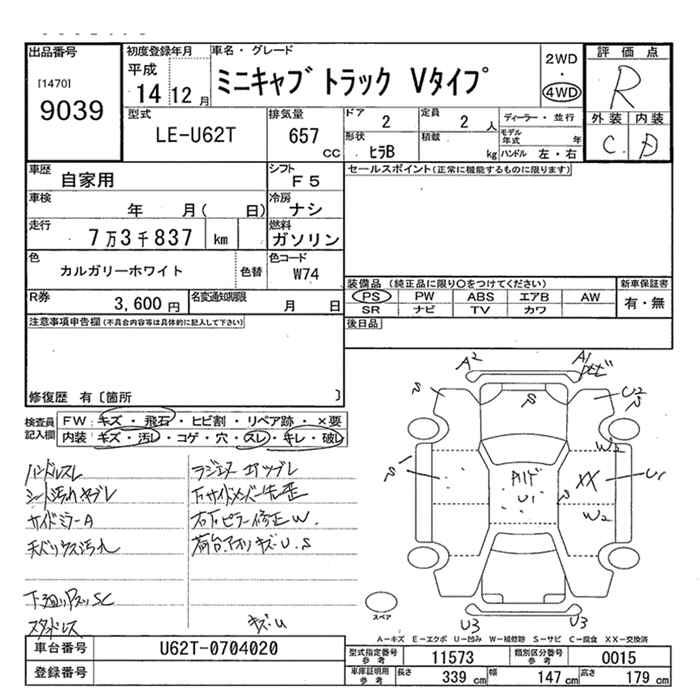 出品番号
[1470]
9039
初度登録年月
平成
14 12 月
車名・グレード
ミニキャブ トラック Vタイプ
2WD
・
4WD
評価点
R
外装 内装
C D
型式
LE-U62T
排気量
657 cc
ドア
2
定員
2 人
形状
ヒラB
積載
kg
ディーラー・並行
モデル年式 年
ハンドル 左・右
車歴
自家用
シフト
F5
セールスポイント(正常に機能するものに限ります)
車検
年 月( 日)
冷房
ナシ
走行
7万3千837 km
燃料
ガソリン
色
カルガリーホワイト
色替
色コード
W74
装備品(純正品に限り○をつけてください)
PS PW ABS エアB AW
SR ナビ TV カワ
新車保証書
有・無
R券
3,600 円
名変通知期限
月 日
後日品
注意事項申告欄(不具合内容等は具体的に記入して下さい)
修復歴 有〔箇所 〕
検査員記入欄
FW:キズ・飛石・ヒビ割・リペア跡・×要
内装:キズ・汚レ・コゲ・穴・スレ・キレ・破レ
ハンドルスレ
シート汚れヤブレ
サイドミラーA
天バリウス汚れ
下サイドメンバー先歪
右下ピラー修正W.
荷台.アオリキズU.S
キズU
スタッドレス
A2
A1
ヒビ
S
U2
S
W2
XX
U1
S
U1
S
W2
U3
U3
スペア
A-キズ E-エクボ U-凹み W-補修跡 S-サビ C-腐食 XX-交換済
車台番号
U62T-0704020
登録番号
型式指定番号 参考
11573
類別区分番号 参考
0015
車庫証明用 参考
長さ 339 cm 幅 147 cm 高さ 179 cm